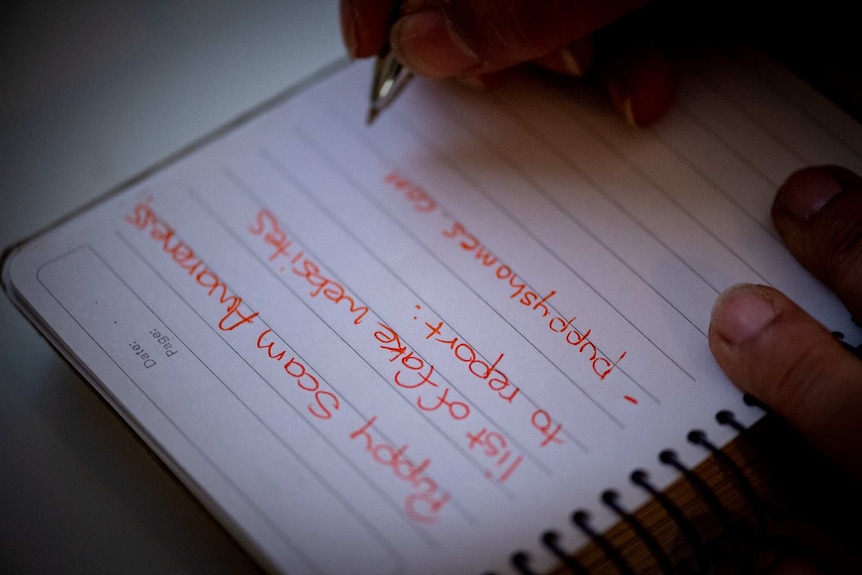 Date:
Page:
Puppy Scam Awareness.
list of fake websites
to report:
- puppyshomes.com